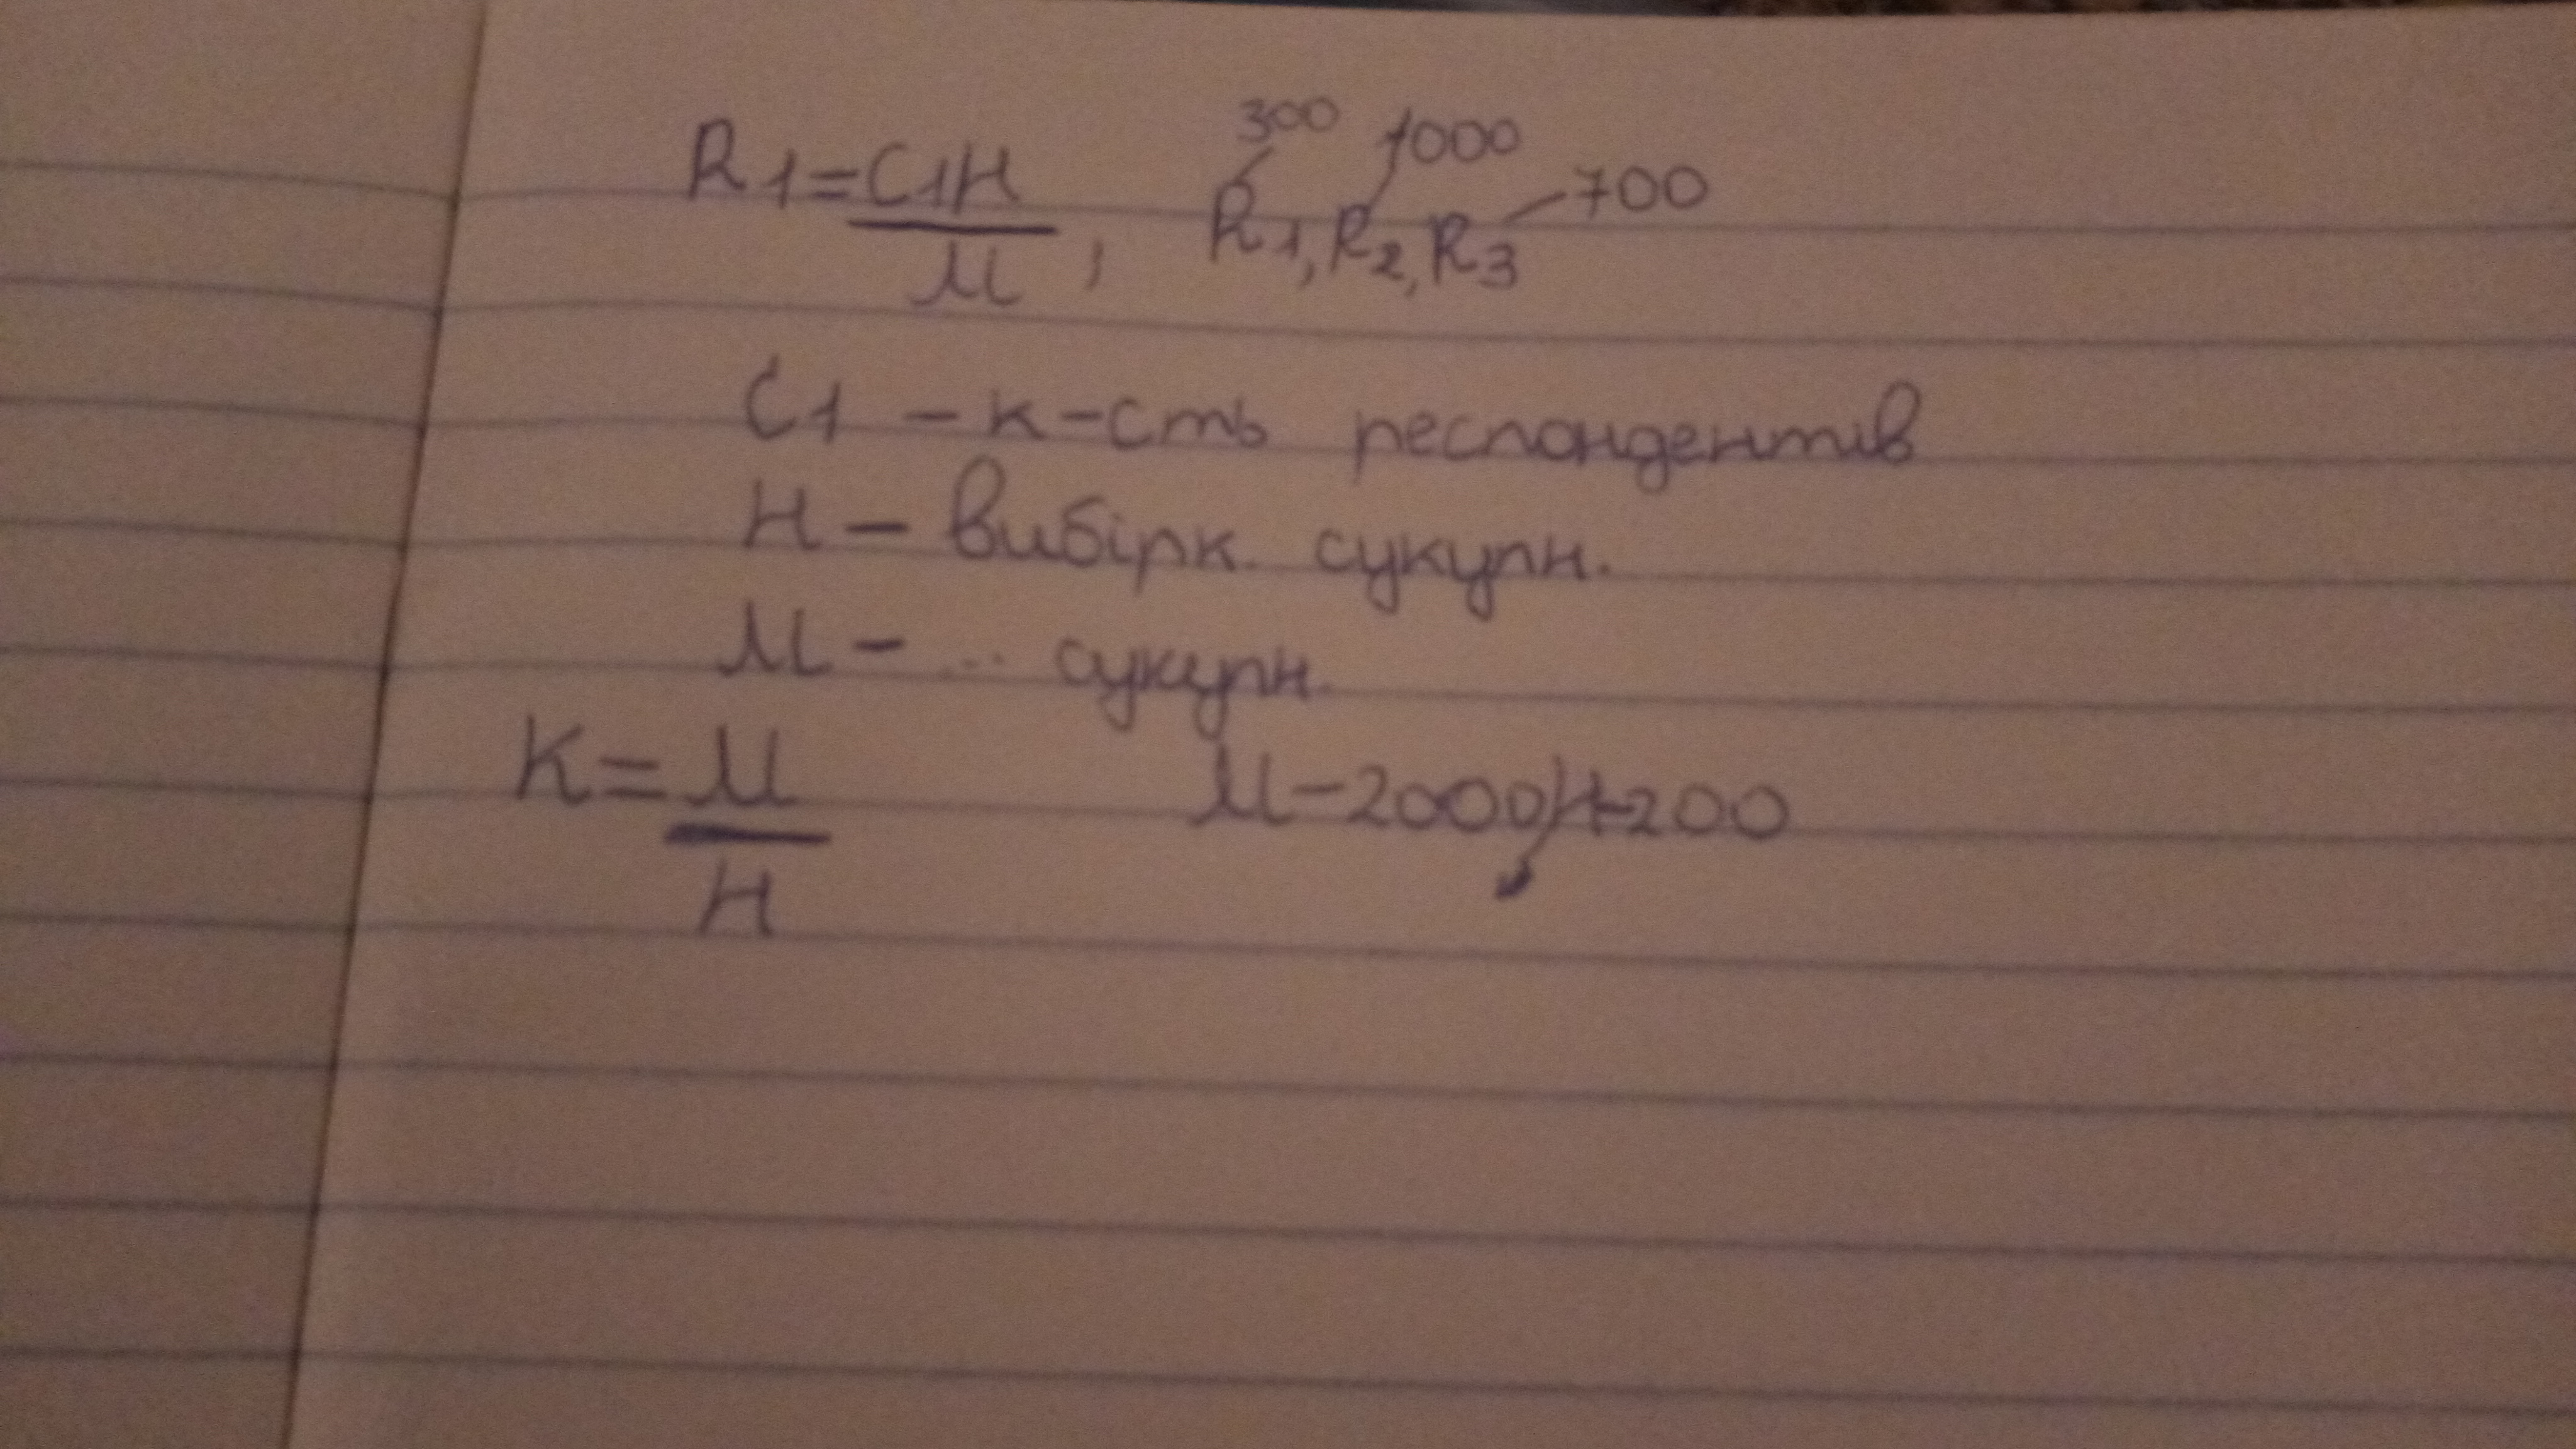 300 1000
R1=C1H 700
M , R1, R2, R3
C1 – к-сть респондентів
H – вибірк. сукупн.
M – ... сукупн.
K=M M–2000, H–200
H